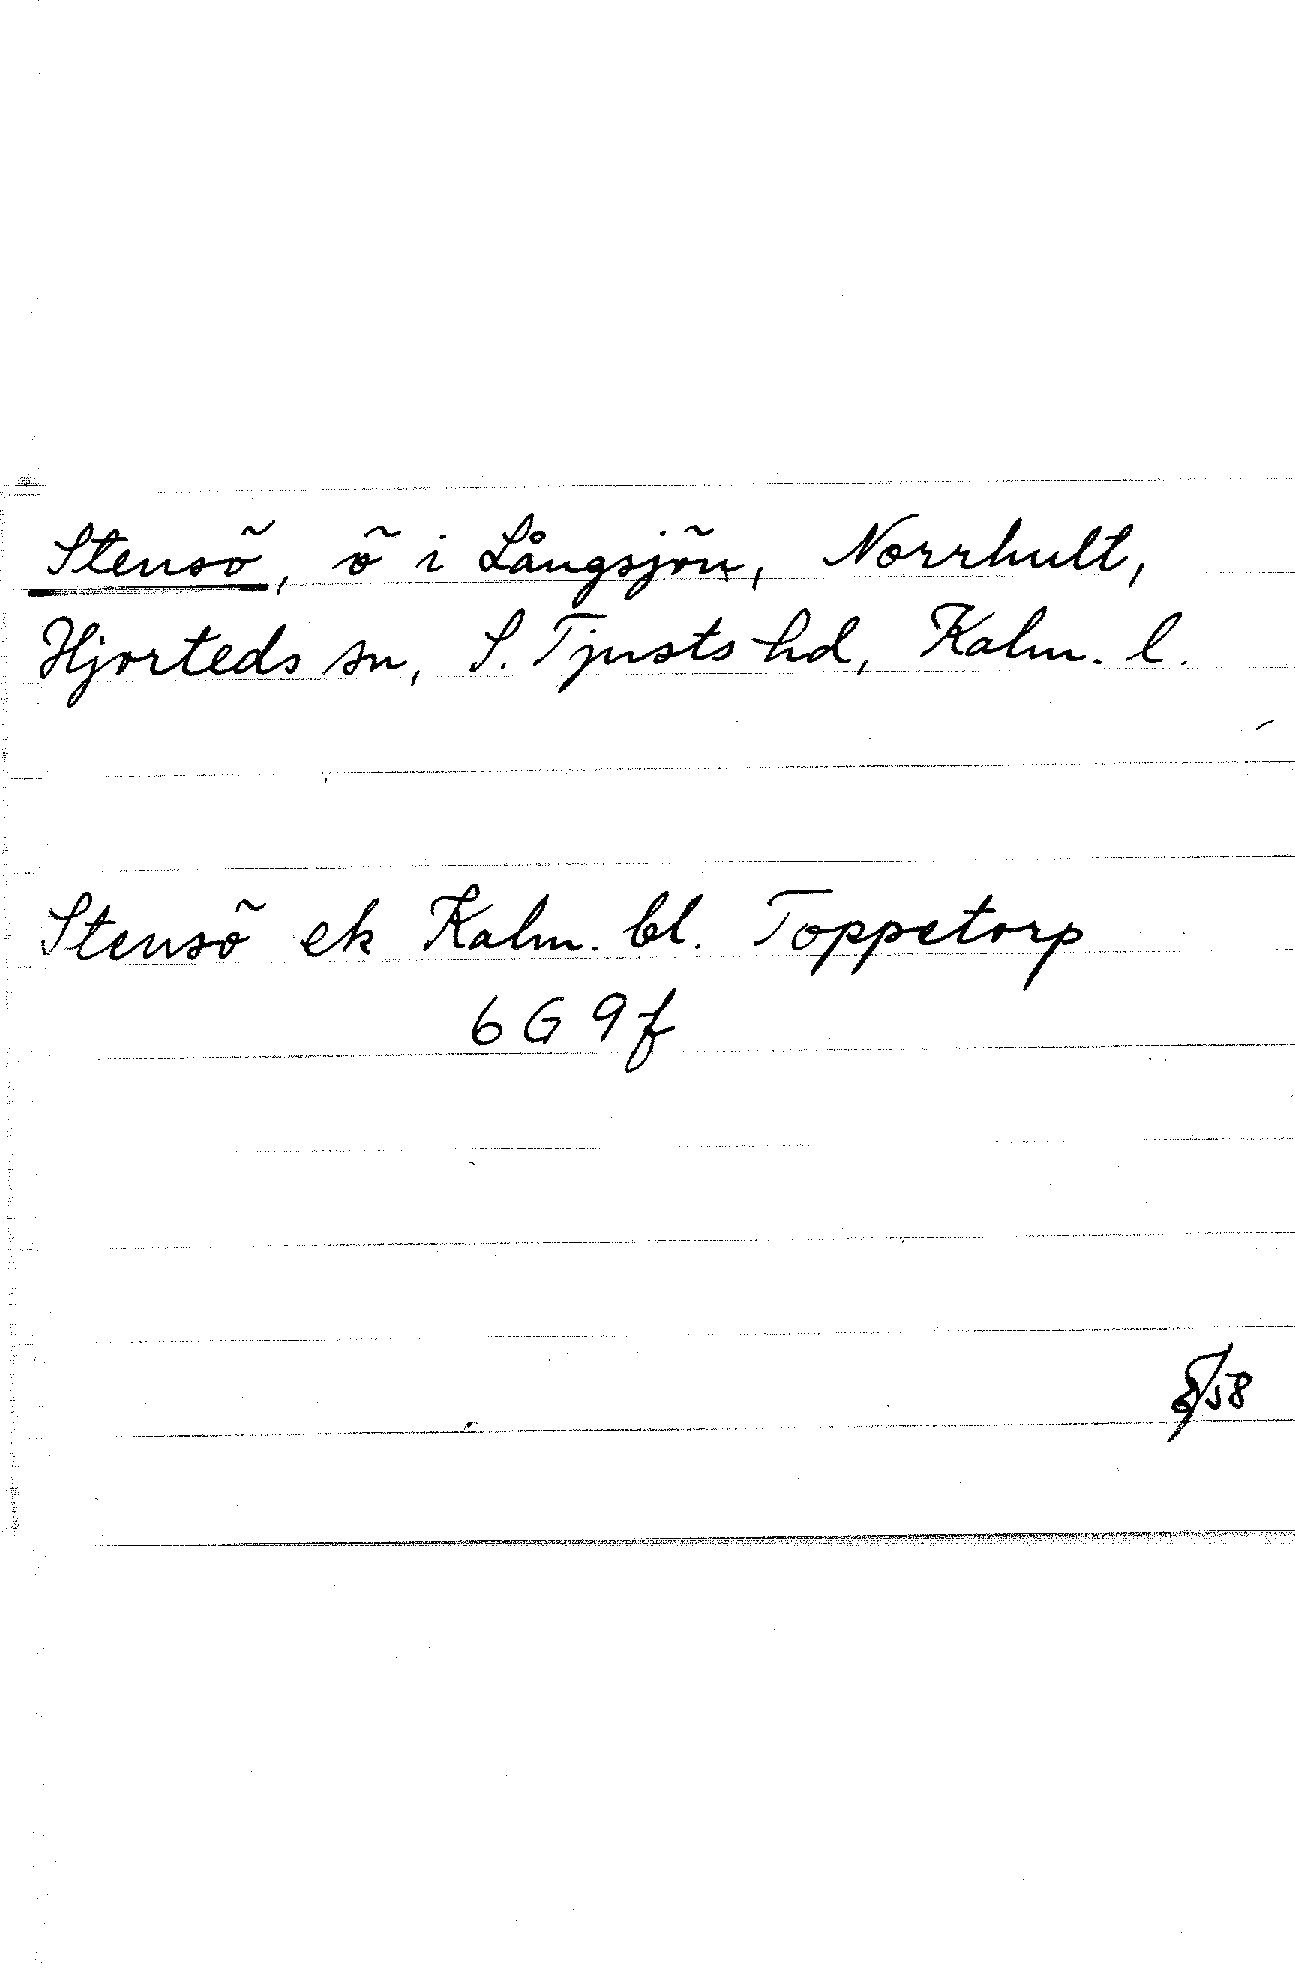 Stensö, ö i Långsjön, Norrhult,
Hjorteds sn, S. Tjusts hd, Kalm. l.
Stensö ek Kalm. bl. Toppetorp
6 G 9 f